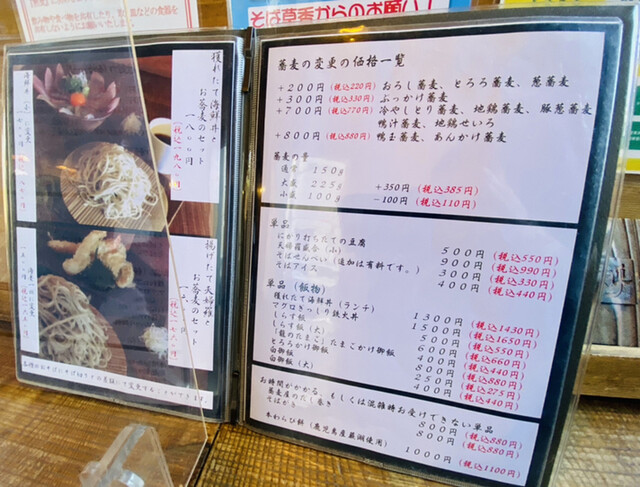 そば草香からのお願い！
穫れたて海鮮丼と
お蕎麦のセット
一八〇〇円
（税込一九八〇円）
揚げたて天婦羅と
お蕎麦のセット
蕎麦の変更の価格一覧
+200円（税込220円）おろし蕎麦、とろろ蕎麦、葱蕎麦
+300円（税込330円）ぶっかけ蕎麦
+700円（税込770円）冷やしとり蕎麦、地鶏蕎麦、豚葱蕎麦
鴨汁蕎麦、地鶏せいろ
+800円（税込880円）鴨玉蕎麦、あんかけ蕎麦
蕎麦の量
通常 150g
大盛 225g +350円（税込385円）
小盛 100g −100円（税込110円）
単品
にがり打ちたての豆腐 500円（税込550円）
天婦羅盛合（小） 900円（税込990円）
そばせんべい（追加は有料です。） 300円（税込330円）
そばアイス 400円（税込440円）
単品（飯物）
穫れたて海鮮丼（ランチ） 1300円（税込1430円）
マグロぎっしり鉄火丼 1500円（税込1650円）
しらす飯 500円（税込550円）
しらす飯（大） 600円（税込660円）
「龍のたまご」たまごかけ御飯 400円（税込440円）
とろろかけ御飯 800円（税込880円）
白御飯 250円（税込275円）
白御飯（大） 400円（税込440円）
お時間がかかる、もしくは混雑時お受けできない単品
蕎麦屋のだし巻き 800円（税込880円）
そばがき 800円（税込880円）
本わらび餅（鹿児島産蕨澱使用） 1000円（税込1100円）